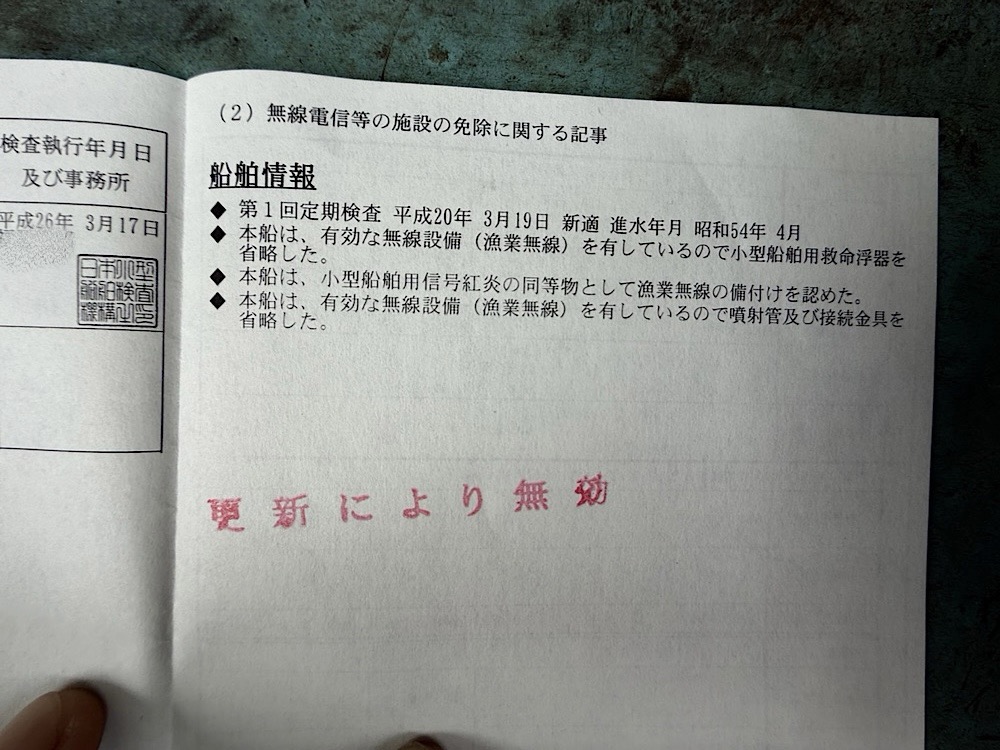 検査執行年月日
及び事務所
平成26年 3月17日
日本小型
船舶検査
機構之印
(2) 無線電信等の施設の免除に関する記事
船舶情報
◆ 第1回定期検査 平成20年 3月19日 新適 進水年月 昭和54年 4月
◆ 本船は、有効な無線設備（漁業無線）を有しているので小型船舶用救命浮器を
省略した。
◆ 本船は、小型船舶用信号紅炎の同等物として漁業無線の備付けを認めた。
◆ 本船は、有効な無線設備（漁業無線）を有しているので噴射管及び接続金具を
省略した。
更新により無効